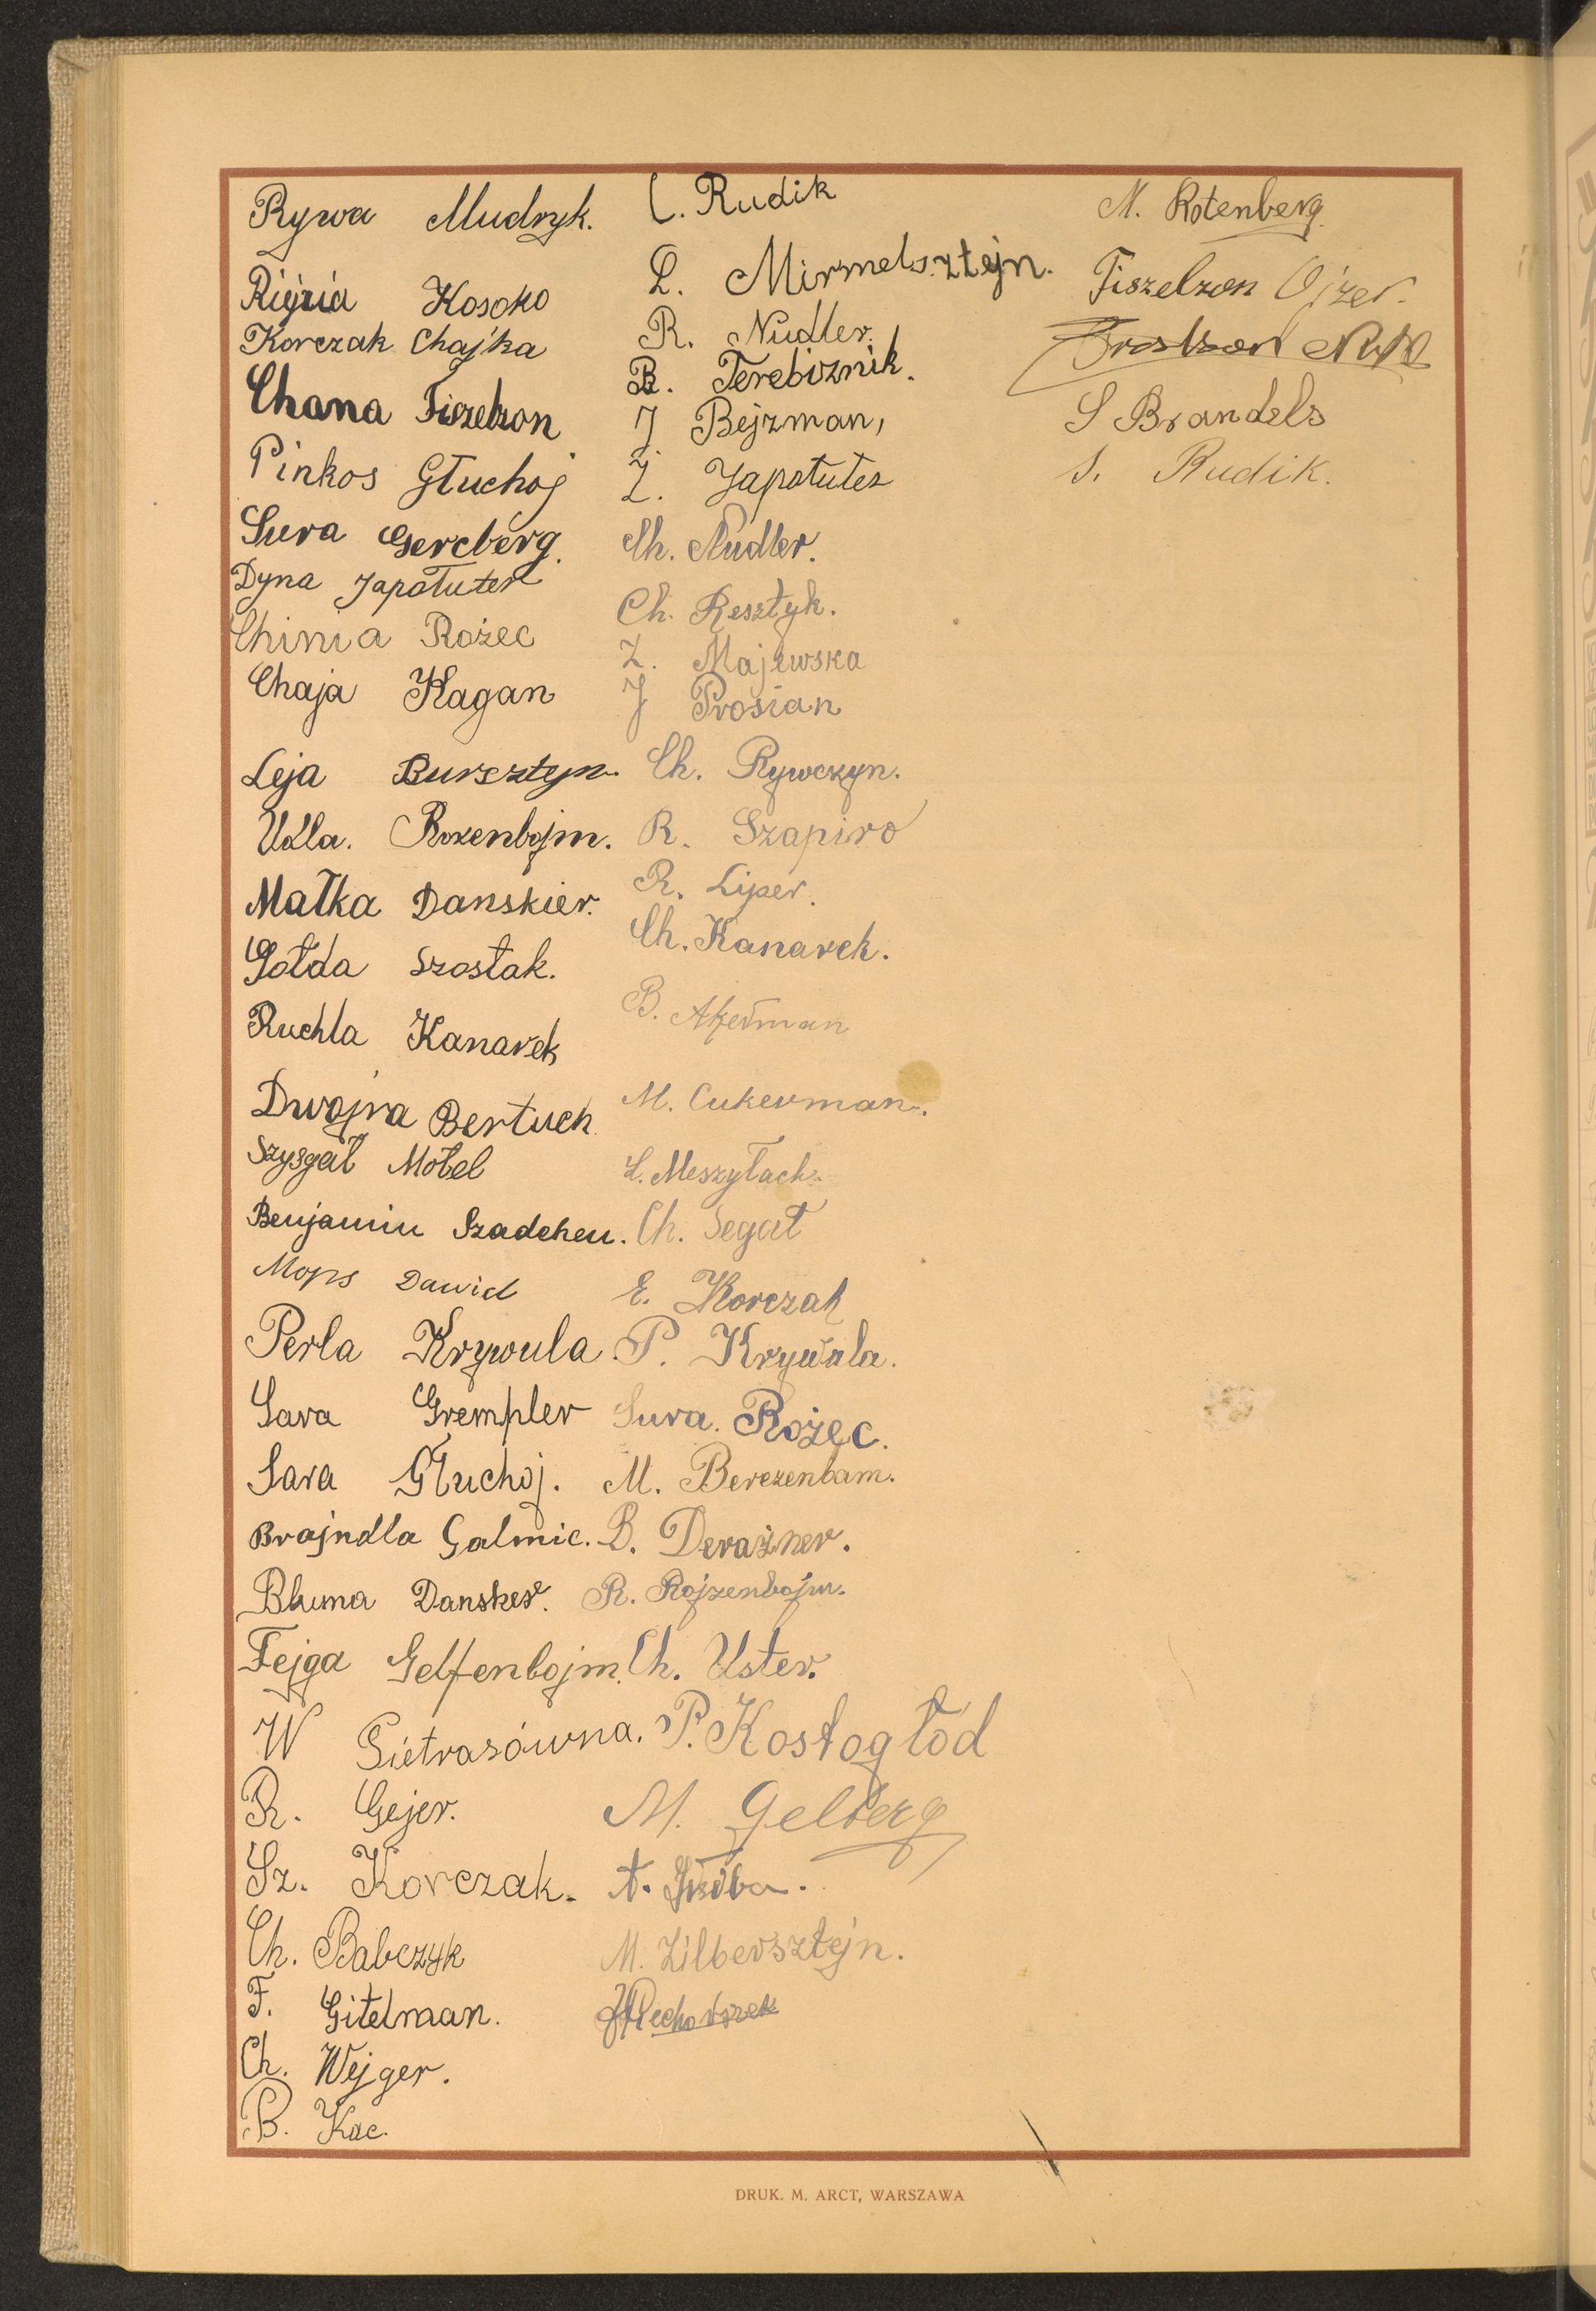 Rywa Mudryk.
Kosoko
Korczak Chajka
Chana Fiszelzon
Pinkos Głuchoj
Sura Gercberg.
Dyna Japołuter
Chinia Rożec
Chaja Kagan
Leja Bursztyn.
Udla. Rozenbojm.
Małka Danskier.
Gołda Szostak.
Ruchla Kanarek
Dwojra Bertuch
Szysgał Motel
Benjamin Szadchen.
Mops Dawid
Perla Krywula.
Sara Grempler
Sara Głuchoj.
Brajndla Galmic.
Bluma Dansker.
Fejga Gelfenbojm.
W Pietrasówna.
R. Gejer.
Sz. Korczak.
Ch. Babczyk
F. Gitelman.
Ch. Wejger.
B. Kac.
C. Rudik
L. Mirmelsztejn.
R. Nudler.
B. Terebiznik.
J Bejzman,
Z. Japołuter
Ch. Nudler.
Ch. Resztyk.
Z. Majewska
J Prosian
Ch. Rywczyn.
R. Szapiro
R. Liper.
Ch. Kanarek.
B. Akerman
M. Cukerman.
L. Meszyłach.
Ch. Segał
E. Korczak
P. Krywula.
Sura. Rożec.
M. Berezenbam.
B. Derażner.
R. Rojzenbojm.
Ch. Uster.
P. Kosłogłod
M. Gelberg
M. Zilbersztejn.
M. Rotenberg.
Fiszelzon Ojzer.
S Brandels
S. Rudik.
DRUK. M. ARCT, WARSZAWA